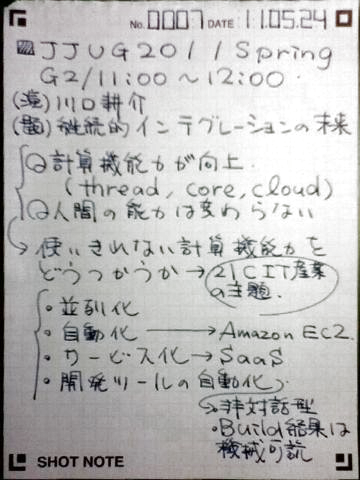 No. 0007 DATE 11.05.24
JJUG2011 Spring
G2/11:00～12:00
(演)川口耕介
(題)継続的インテグレーションの未来
計算機能力が向上.
(thread, core, cloud)
人間の能力は変わらない
使いきれない計算機能力を
どうつかうか→21C IT産業
の主題.
・並列化
・自動化→Amazon EC2.
・サービス化→SaaS
・開発ツールの自動化
→非対話型
・Build結果は
機械可読
SHOT NOTE